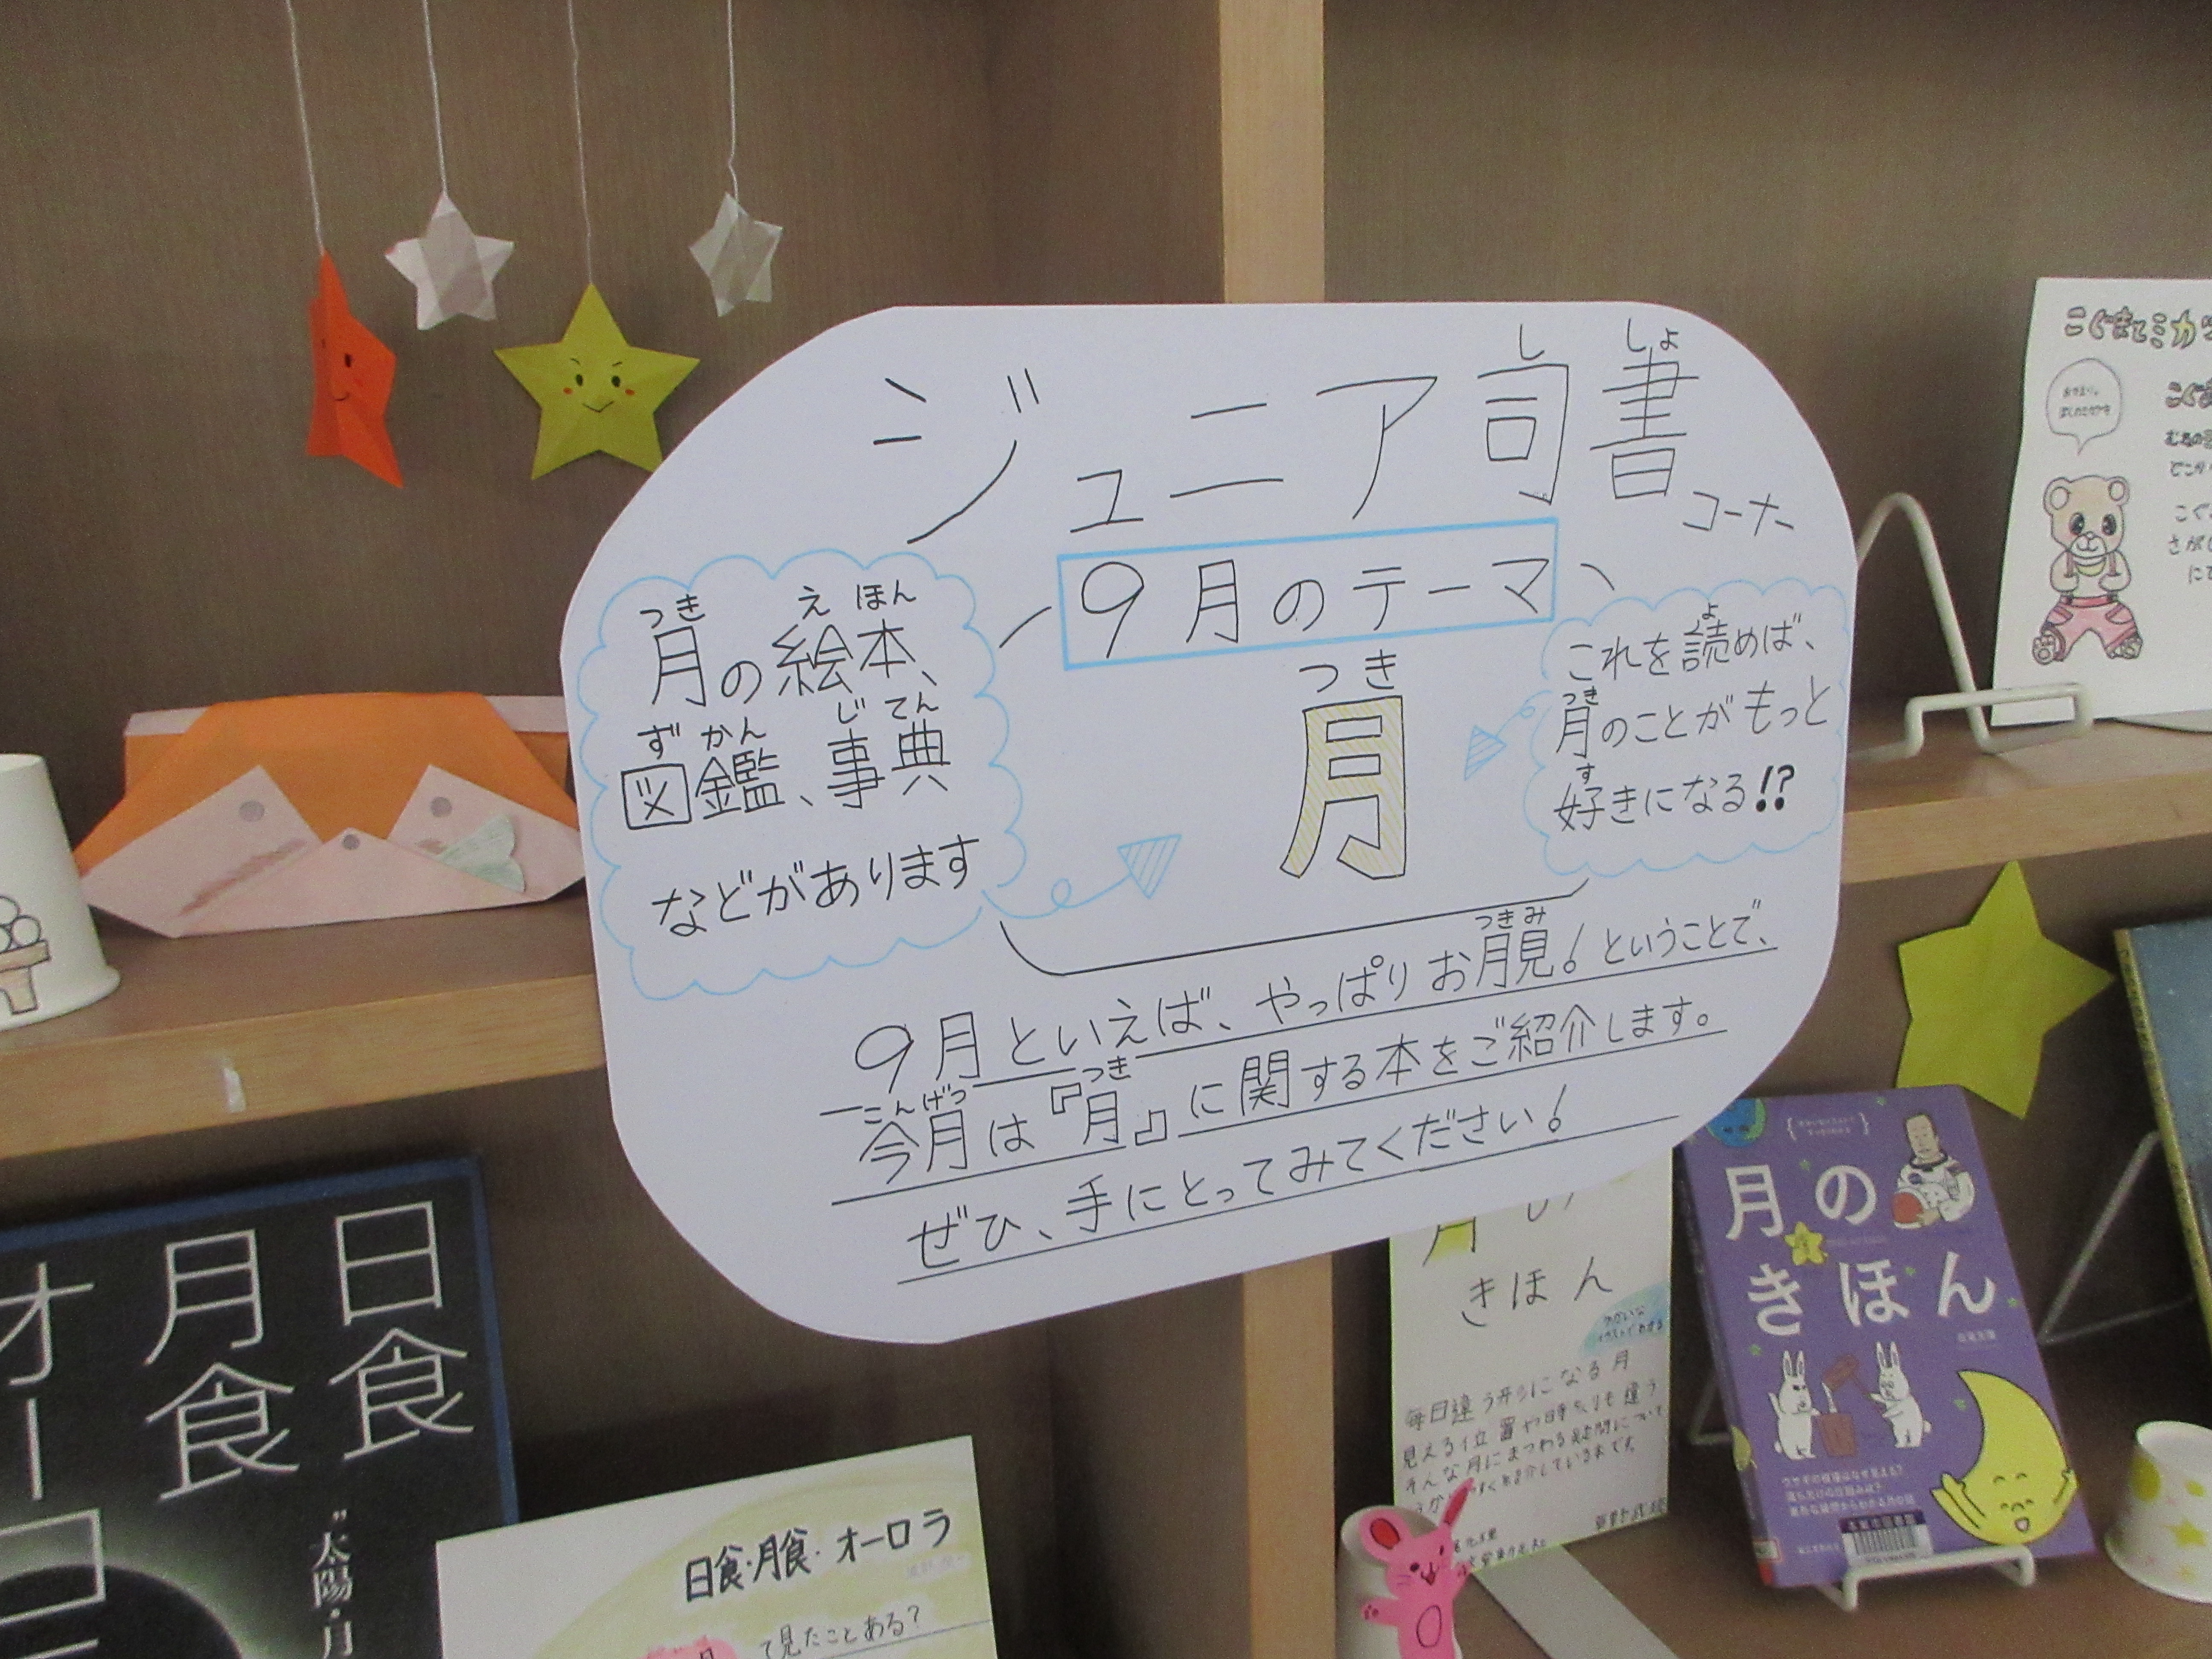 ジュニア司書コーナー
しょ
9月のテーマ
つき
月
つき え ほん
月の絵本、
ず かん じ てん
図鑑、事典
などがあります
よ
これを読めば、
つき
月のことがもっと
す
好きになる!?
つきみ
9月といえば、やっぱりお月見!ということで、
こんげつ つき
今月は『月』に関する本をご紹介します。
ぜひ、手にとってみてください!
こぐまとミカ
日食
月食
オーロ
"太陽・月
日食・月食・オーロラ
て見たことある?
きほん
毎日違う形になる月
見える位置や時間も違う
そんな月にまつわる疑問について
月の
きほん